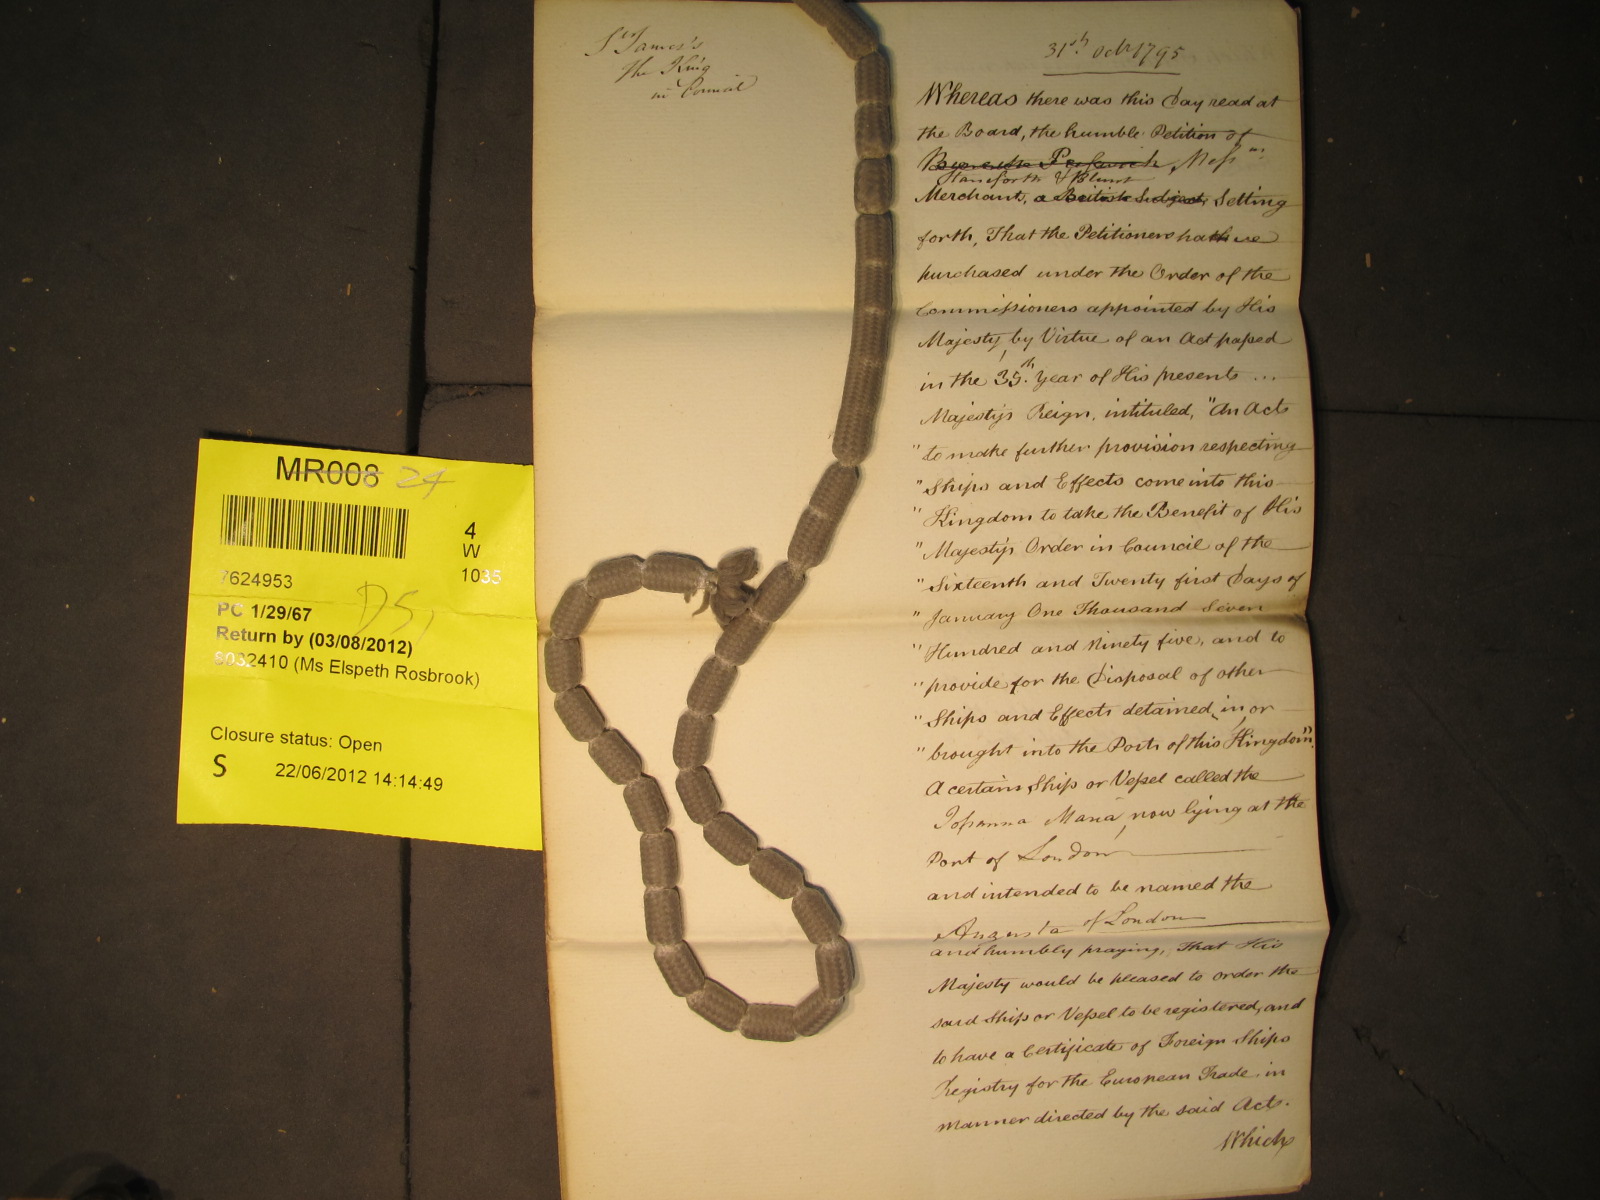 MR008 24
4
W
1035
7624953
D51
PC 1/29/67
Return by (03/08/2012)
8032410 (Ms Elspeth Rosbrook)
Closure status: Open
S 22/06/2012 14:14:49
St James's
The King
in Council
31st Octr 1795
Whereas there was this Day read at
the Board, the humble Petition of
Messrs
Staniforth & Blunt
Merchant, a British Subject, Setting
forth, That the Petitioners have
purchased under the Order of the
Commissioners appointed by His
Majesty, by Virtue of an Act passed
in the 35th Year of His present ...
Majesty's Reign, intituled, "An Act
" to make further provision respecting
" Ships and Effects come into this
" Kingdom to take the Benefit of His
" Majesty's Order in Council of the
" Sixteenth and Twenty first Days of
" January One Thousand Seven
" Hundred and Ninety five, and to
" provide for the Disposal of other
" Ships and Effects detained in or
" brought into the Ports of this Kingdom"
A certain Ship or Vessel called the
Johanna Maria, now lying at the
Port of London
and intended to be named the
Augusta of London
and humbly praying, That His
Majesty would be pleased to order the
said Ship or Vessel to be registered, and
to have a Certificate of Foreign Ships
Registry for the European Trade, in
manner directed by the said Act.
Which